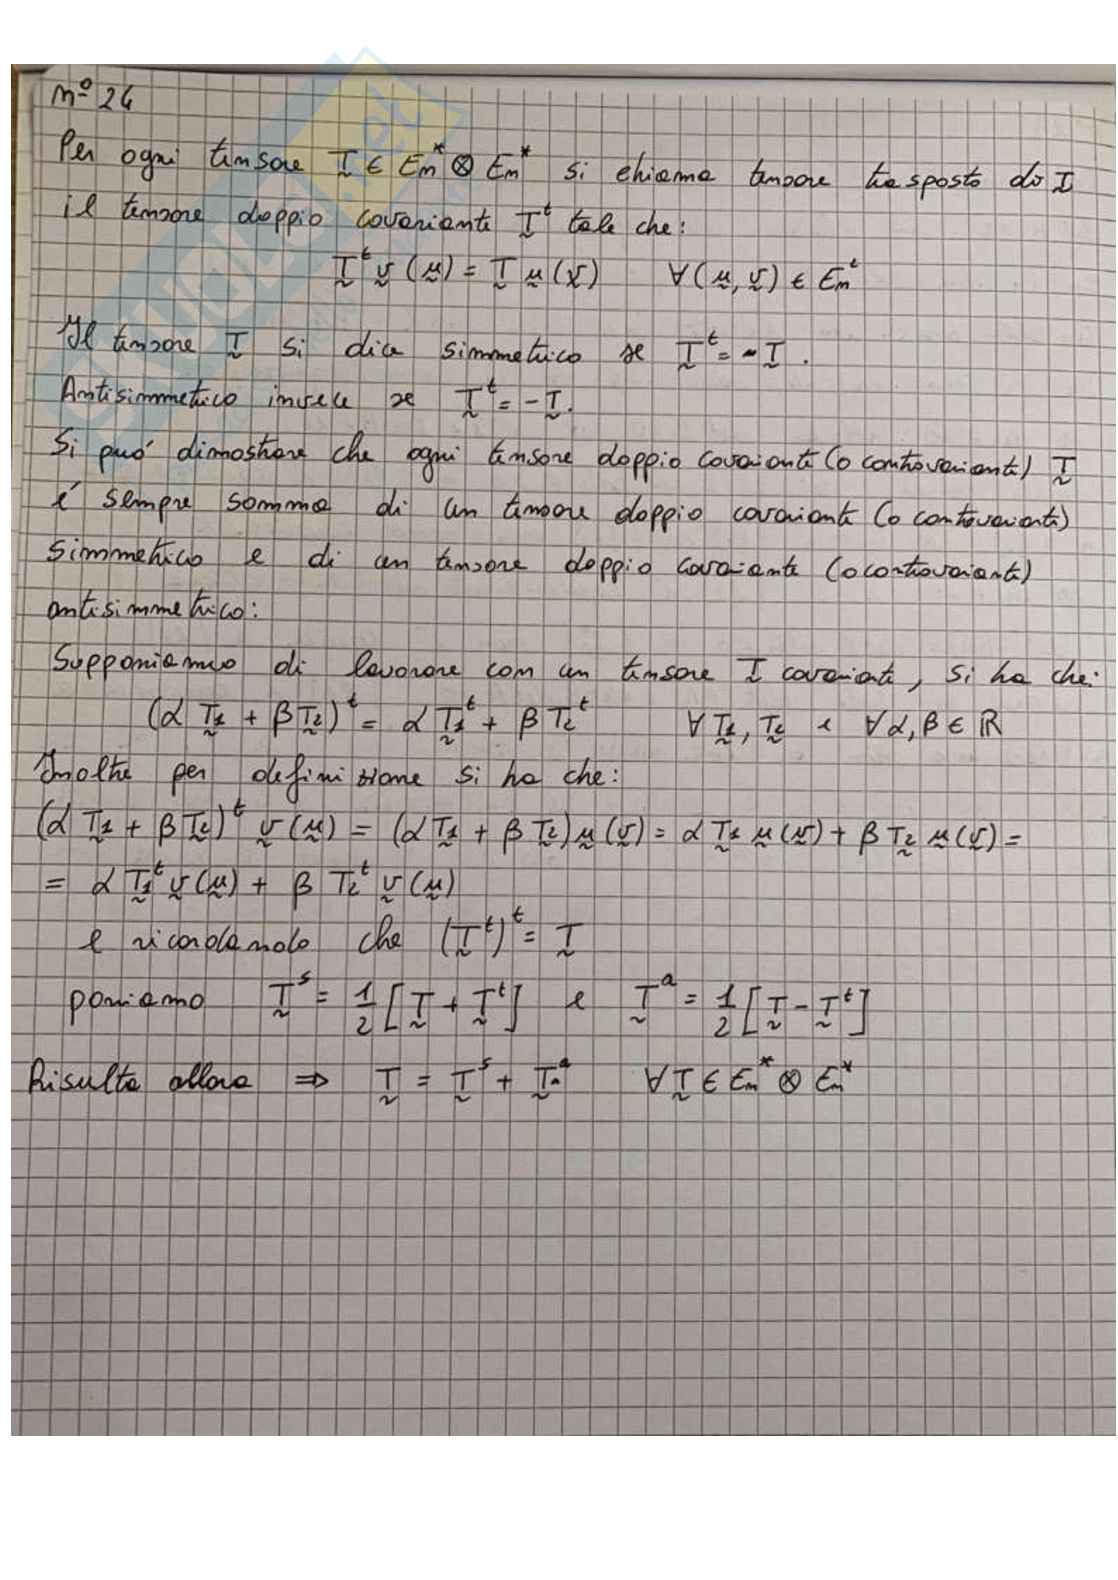 nº 24
Per ogni tensore T̰ ∈ Em* ⊗ Em* si chiama tensore trasposto di T̰
il tensore doppio covariante T̰ᵗ tale che:
T̰ᵗ v̰ (ṵ) = T̰ ṵ (v̰) ∀ (ṵ, v̰) ∈ Emᵗ
Il tensore T̰ si dice simmetrico se T̰ᵗ = - T̰.
Antisimmetrico invece se T̰ᵗ = - T̰.
Si puó dimostrare che ogni tensore doppio covariante (o controvariante) T̰
é sempre somma di un tensore doppio covariante (o controvariante)
simmetrico e di un tensore doppio covariante (o controvariante)
antisimmetrico:
Supponiamo di lavorare con un tensore T̰ covariante, si ha che:
(α T̰1 + β T̰2)ᵗ = α T̰1ᵗ + β T2ᵗ ∀ T̰1, T̰2 e ∀ α, β ∈ ℝ
Inoltre per definizione si ha che:
(α T̰1 + β T̰2)ᵗ v̰ (ṵ) = (α T̰1 + β T̰2) ṵ (v̰) = α T̰1 ṵ (v̰) + β T̰2 ṵ (v̰) =
= α T̰1ᵗ v̰ (ṵ) + β T2ᵗ v̰ (ṵ)
e ricordando che (T̰ᵗ)ᵗ = T̰
poniamo T̰ˢ = 1/2 [T̰ + T̰ᵗ] e T̰ᵃ = 1/2 [T̰ - T̰ᵗ]
Risulta allora ⇒ T̰ = T̰ˢ + T̰ᵃ ∀ T̰ ∈ Em* ⊗ Em*